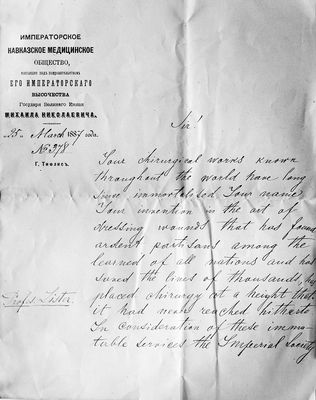 ИМПЕРАТОРСКОЕ
КАВКАЗСКОЕ МЕДИЦИНСКОЕ
ОБЩЕСТВО,
состоящее подъ покровительствомъ
ЕГО ИМПЕРАТОРСКАГО
ВЫСОЧЕСТВА
Государя Великаго Князя
МИХАИЛА НИКОЛАЕВИЧА.
25 March 1887 года.
№ 378
Г. Тифлисъ.
Sir!
Your chirurgical works known
throughout the world have long
since immortalised Your name.
Your invention in the art of
dressing wounds that has found
ardent partisans among the
learned of all nations and has
saved the lives of thousands, has
placed chirurgy at a height that
it had never reached hitherto
In consideration of these immu-
table services the Imperial Society
Profs. Lister.